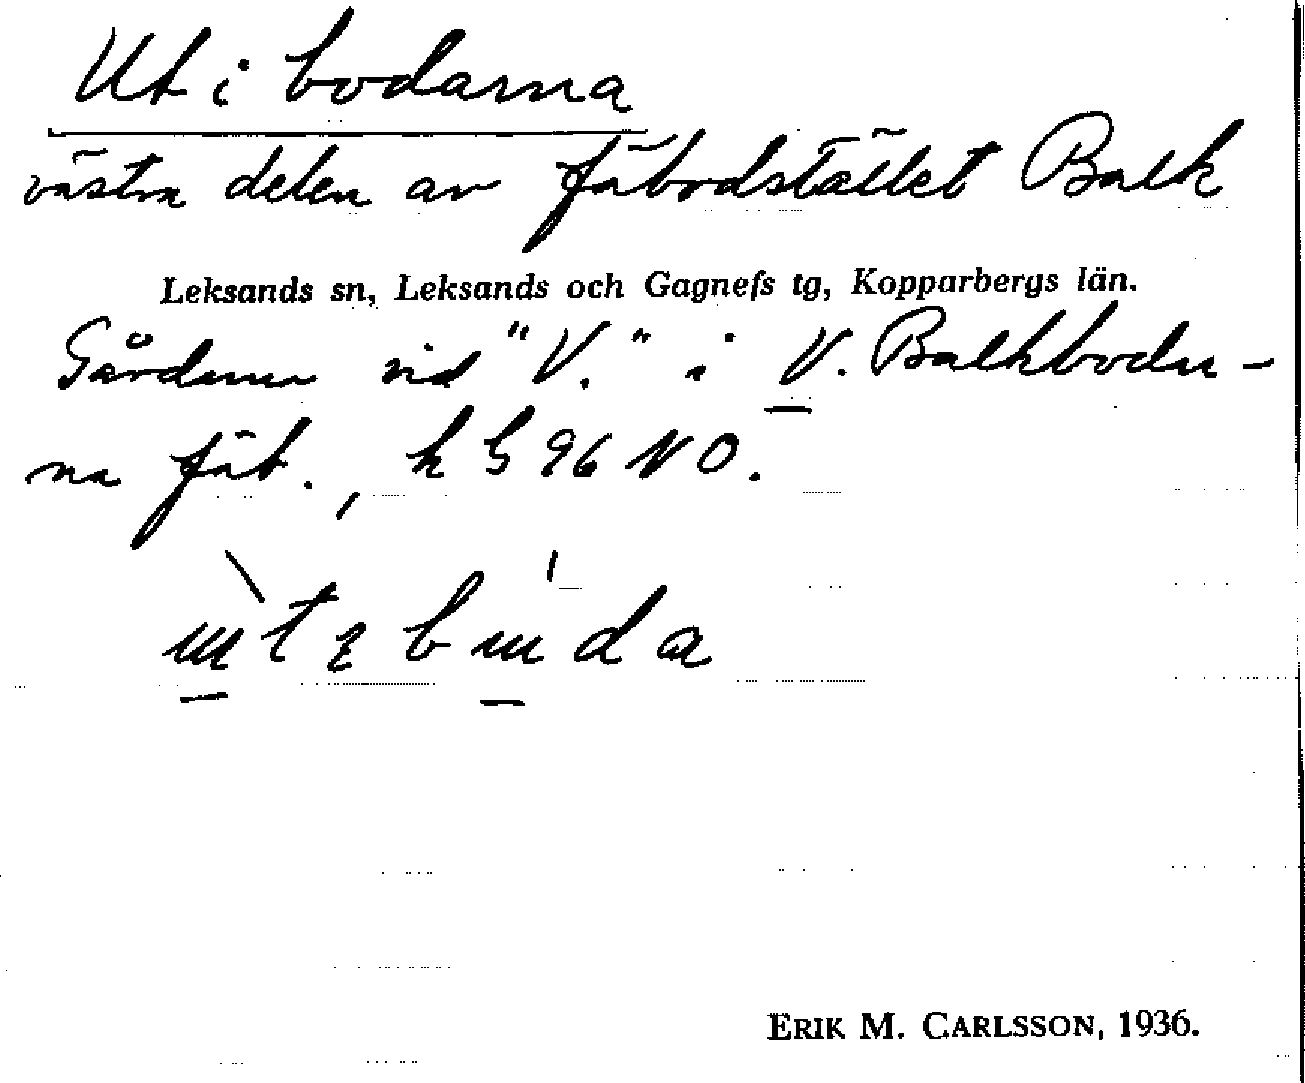 Ut i bodarna
västra delen av fäbodstället Balk
Leksands sn, Leksands och Gagnefs tg, Kopparbergs län.
Gårdarna vid "V." i V. Balkboda-
na fäb., k S 96 NO.
ERIK M. CARLSSON, 1936.